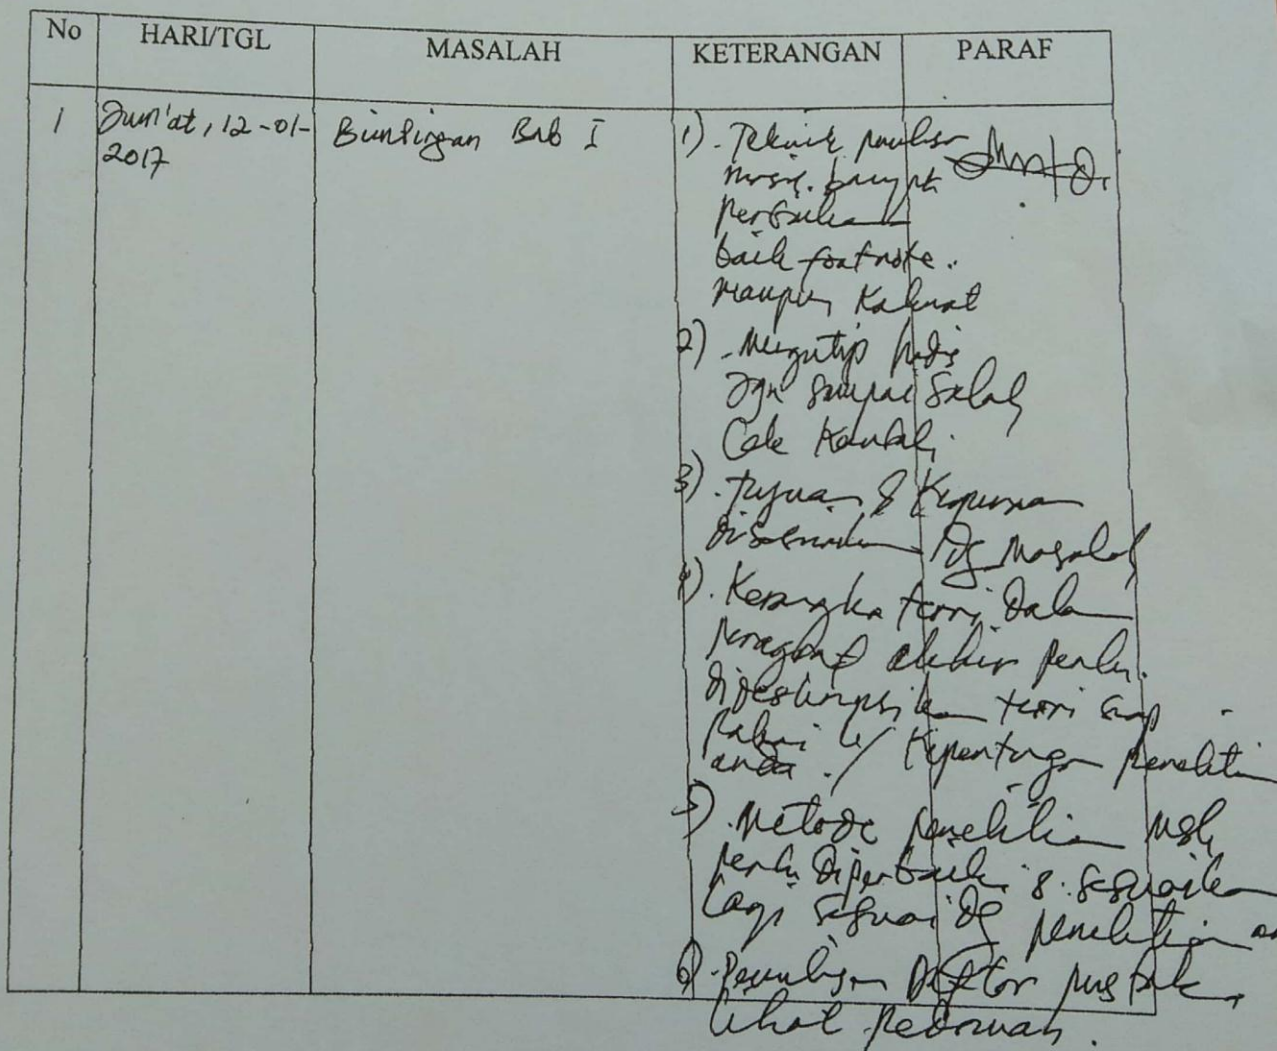 No HARI/TGL MASALAH KETERANGAN PARAF
1 Jum'at, 12-01-2017 Bimbingan Bab I
1). Teknik penulisan
masih banyak
perbaikan
baik footnote.
maupun Kalimat
2) - Mengutip hadis
Jgn Sampai Salah
Cek Kembali.
3). Tujuan & Kegunaan
disesuaikan Dg Masalah
4). Kerangka teori Dalam
paragraf akhir perlu
dideskripsikan teori
Kepentingan penelitian
anda.
5). Metode penelitian Msh
perlu Diperbaiki & Sesuaikan
Lagi Sesuai Dg penelitian
6) - Penulisan Daftar pustaka
lihat pedoman.